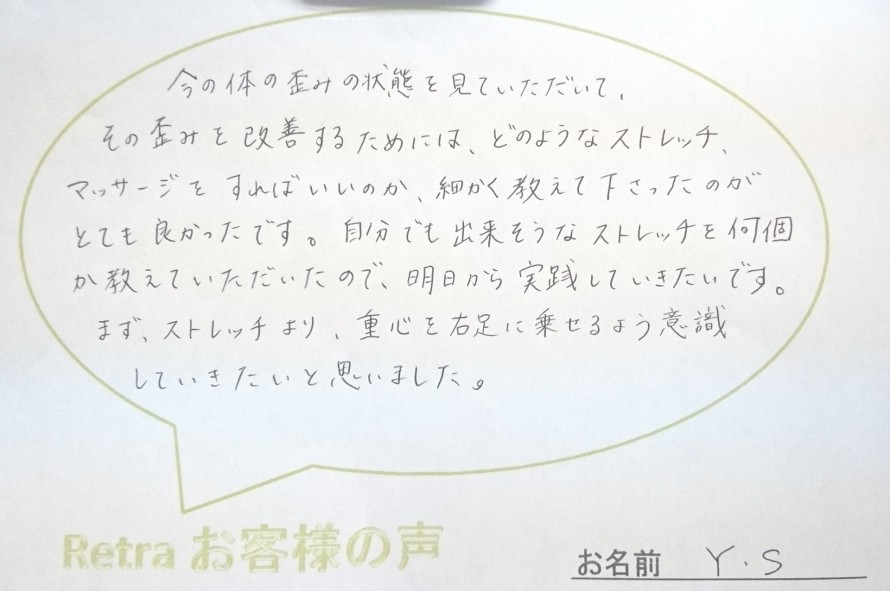 今の体の歪みの状態を見ていただいて、
その歪みを改善するためには、どのようなストレッチ、
マッサージをすればいいのか、細かく教えて下さったのが
とても良かったです。自分でも出来そうなストレッチを何個
か教えていただいたので、明日から実践していきたいです。
まず、ストレッチより、重心を右足に乗せるよう意識
していきたいと思いました。
Retra お客様の声
お名前 Y.S